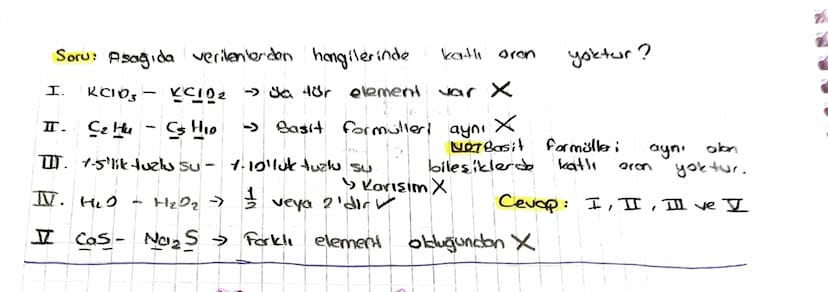 Soru: Aşağıda verilenlerden hangilerinde katlı oran yoktur?
I. KClO₃ - KClO₂ → üç tür element var X
II. C₂H₄ - C₅H₁₀ → Basit formülleri aynı X
NOT Basit formülleri aynı olan
III. %5'lik tuzlu su - %10'luk tuzlu su bileşiklerde katlı oran yoktur.
↳ Karışım X
IV. H₂O - H₂O₂ → 1/2 veya 2'dir ✓ Cevap: I, II, III ve V
V CaS - Na₂S → Farklı element olduğundan X